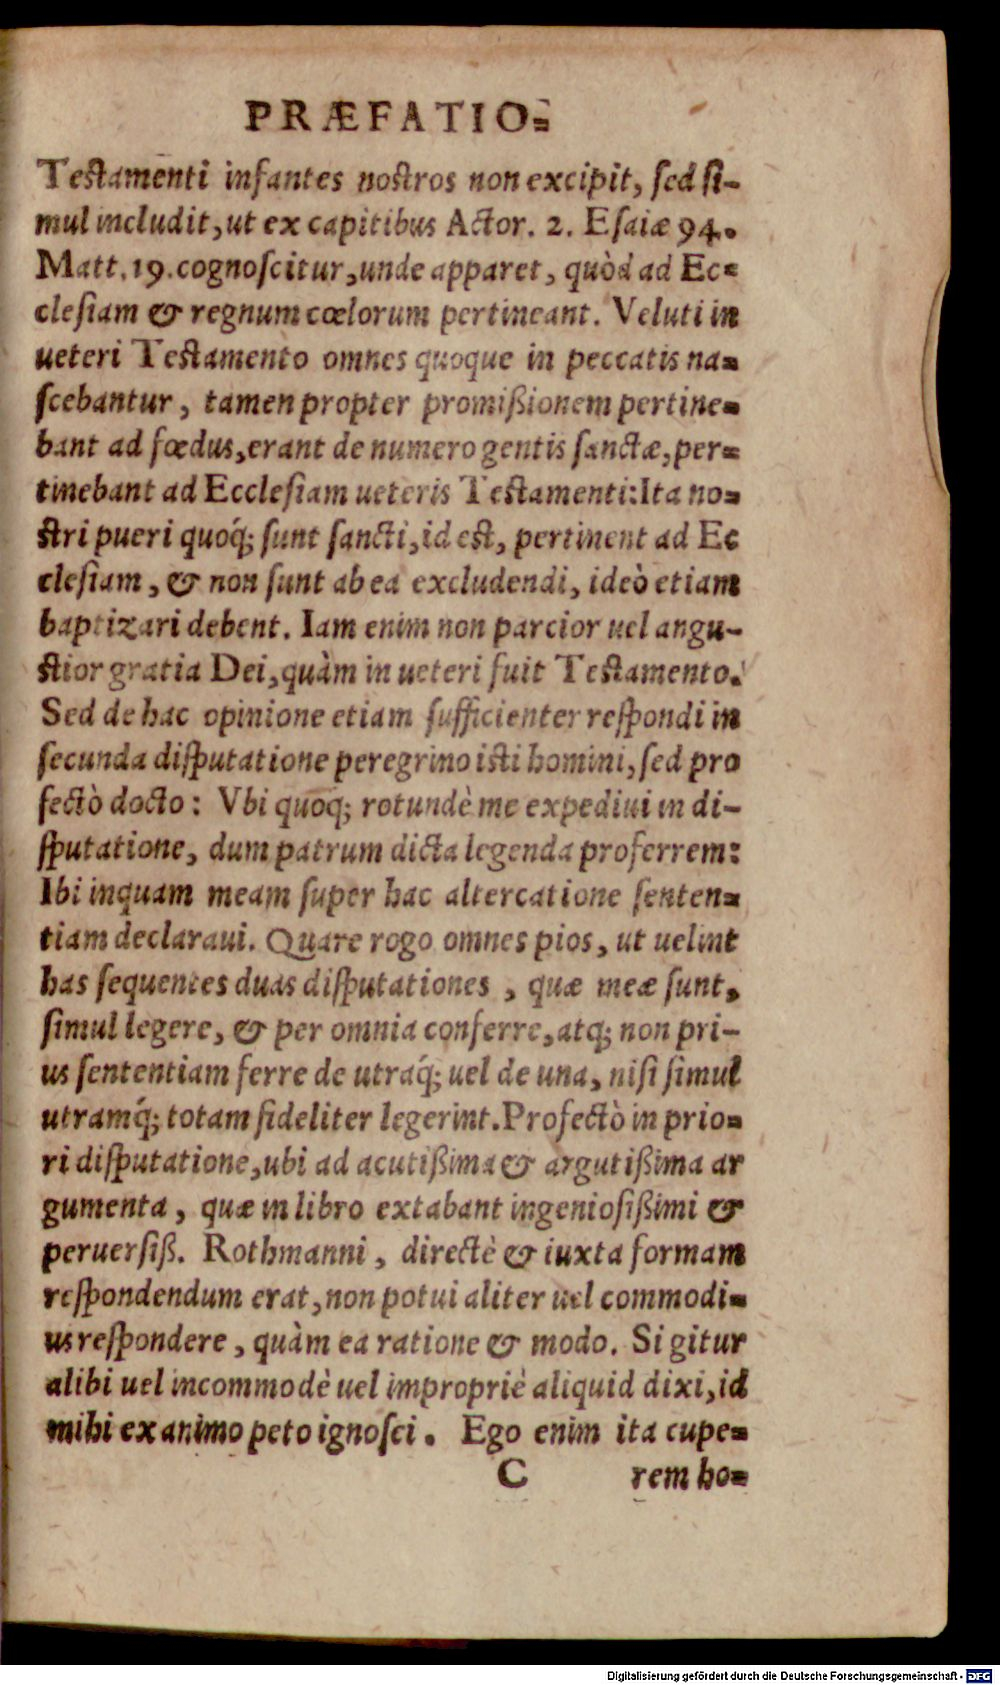 PRÆFATIO.
Testamenti infantes nostros non excipit, sed si-
mul includit, ut ex capitibus Actor. 2. Esaiæ 94.
Matt. 19. cognoscitur, unde apparet, quòd ad Ec-
clesiam & regnum cœlorum pertineant. Veluti in
ueteri Testamento omnes quoque in peccatis na-
scebantur, tamen propter promißionem pertine-
bant ad fœdus, erant de numero gentis sanctæ, per-
tinebant ad Ecclesiam ueteris Testamenti: Ita no-
stri pueri quoq́; sunt sancti, id est, pertinent ad Ec
clesiam, & non sunt ab ea excludendi, ideò etiam
baptizari debent. Iam enim non parcior uel angu-
stior gratia Dei, quàm in ueteri fuit Testamento.
Sed de hac opinione etiam sufficienter respondi in
secunda disputatione peregrino isti homini, sed pro
fectò docto: Vbi quoq; rotundè me expediui in di-
sputatione, dum patrum dicta legenda proferrem:
Ibi inquam meam super hac altercatione senten-
tiam declaraui. Quare rogo omnes pios, ut uelint
has sequentes duas disputationes, quæ meæ sunt,
simul legere, & per omnia conferre, atq; non pri-
us sententiam ferre de utraq́; uel de una, nisi simul
utramq́; totam fideliter legerint. Profectò in prio-
ri disputatione, ubi ad acutißima & argutißima ar
gumenta, quæ in libro extabant ingeniosißimi &
peruersiß. Rothmanni, directè & iuxta formam
respondendum erat, non potui aliter uel commodi-
us respondere, quàm ea ratione & modo. Si gitur
alibi uel incommodè uel impropriè aliquid dixi, id
mihi ex animo peto ignosci. Ego enim ita cupe-
C rem ho-
Digitalisierung gefördert durch die Deutsche Forschungsgemeinschaft - DFG